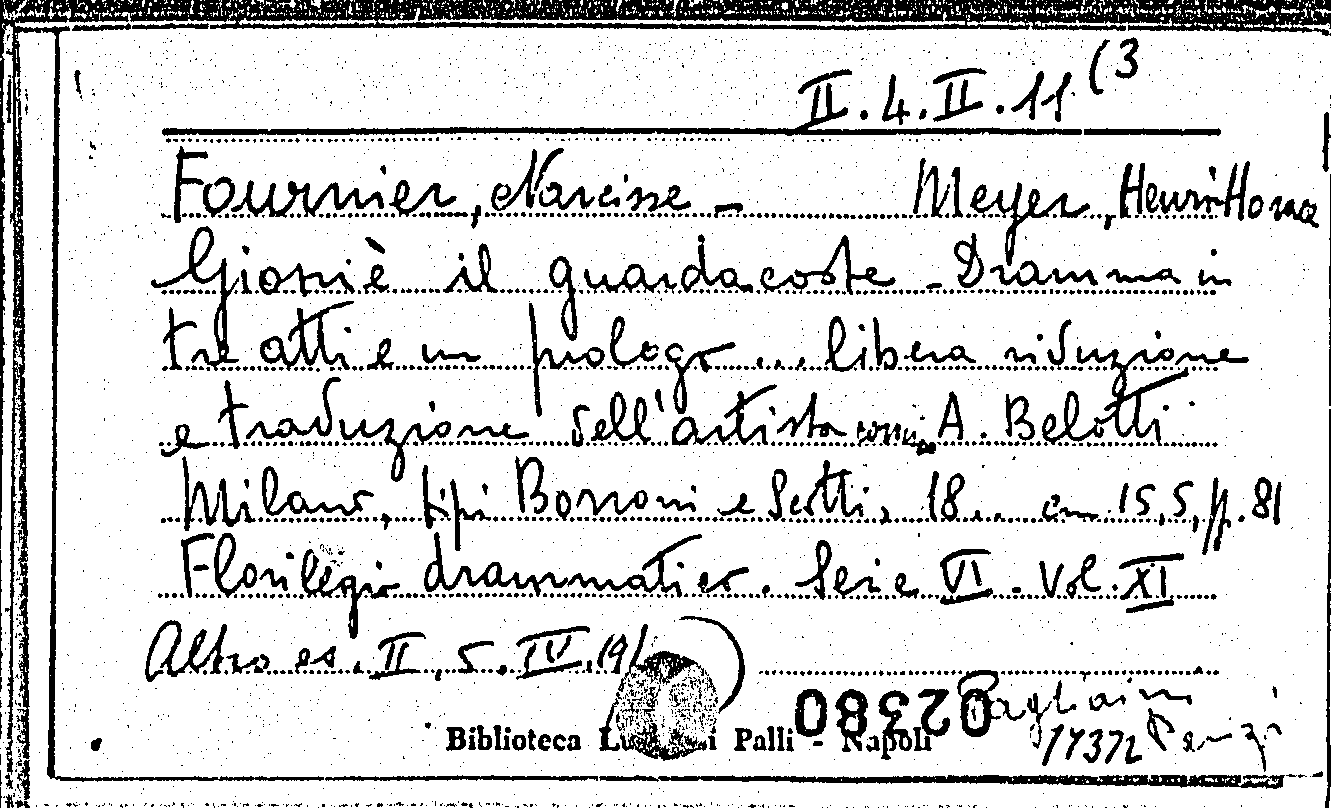 II.4.II.11(3
Fournier, Narcisse - Meyer, Henri Horace
Gionniè il guardacoste - Dramma in
tre atti e un prologo ... libera riduzione
e traduzione dell'artista A. Belotti
Milano, tipi Borroni e Scotti, 18.. cm 15,5, pp. 81
Florilegio drammatico. Serie VI. Vol. XI
Altro es. II.5.IV.19(
Biblioteca Palli - Napoli
02380